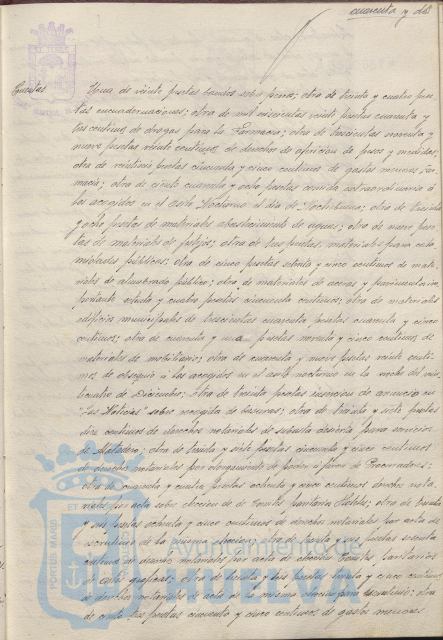 cuarenta y dos
Cuentas
Una de veinte pesetas sobre ; otra de treinta y cuatro pese-
tas encuadernaciones; otra de mil seiscientas veinte pesetas cuarenta y
tres centimos de drogas para la Farmacia; otra de trescientas noventa y
nueve pesetas veinte centimos de derechos de aferición de pesos y medidas;
otra de veintiseis pesetas cincuenta y cinco centimos de gastos menores Far-
macia; otra de ciento cuarenta y ocho pesetas comida extraordinaria á
los acogidos en el Asilo Nocturno el dia de Nochebuena; otra de treinta
y ocho pesetas de materiales abastecimiento de aguas; otra de nueve pese-
tas de materiales de ; otra de tres pesetas, materiales para eva-
cuatorios públicos; otra de cinco pesetas setenta y cinco centimos de mate-
riales de alumbrado público; otra de materiales de aceras y pavimentación
portante ochenta y cuatro pesetas cincuenta centimos; otra de materiales
edificios municipales de trescientas cuarenta pesetas cuarenta y cinco
centimos; otra de cuarenta y una pesetas noventa y cinco centimos de
materiales de mobiliario; otra de cuarenta y nueve pesetas veinte centi-
mos de obsequio á los acogidos en el asilo nocturno en la noche del vein-
ticuatro de Diciembre; otra de treinta pesetas insercion de anuncio en
"Las Noticias" sobre recogida de basuras; otra de treinta y siete pesetas
diez centimos de derechos notariales de subasta desierta para servicios
de Matadero; otra de treinta y siete pesetas cincuenta y cinco centimos
de derechos notariales por otorgamiento de poder á favor de Procuradores;
otra de cuarenta y cuatro pesetas ochenta y cinco centimos derechos nota-
riales por acta sobre eleccion de de Comité paritario Hoteles; otra de treinta
y seis pesetas ochenta y cinco centimos de derechos notariales por acta de
escrutinio de la misma eleccion; otra de treinta y seis pesetas sesenta
centimos de derechos notariales por acta de eleccion Comité paritario
de Artes graficas; otra de treinta y seis pesetas treinta y cinco centimos
de derechos notariales de acta de la misma eleccion para escrutinio; otra
de ciento tres pesetas cincuenta y cinco centimos de gastos menores
Ayuntamiento de